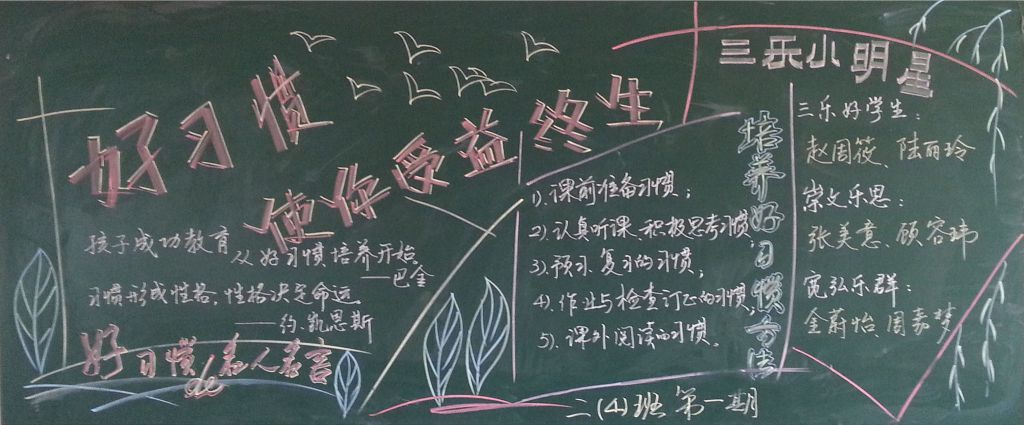 好习惯
使你受益终生
孩子成功教育从好习惯培养开始。
——巴金
习惯形成性格,性格决定命运。
——约.凯恩斯
好习惯的名人名言
1).课前准备习惯;
2).认真听课、积极思考习惯;
3).预习、复习的习惯;
4).作业与检查订正的习惯;
5).课外阅读的习惯。
培养好习惯方法
二(4)班 第一期
三乐小明星
三乐好学生:
赵周筱、陆丽玲
崇文乐思:
张美意、顾容玮
宽弘乐群:
金蔚怡、周嘉梦